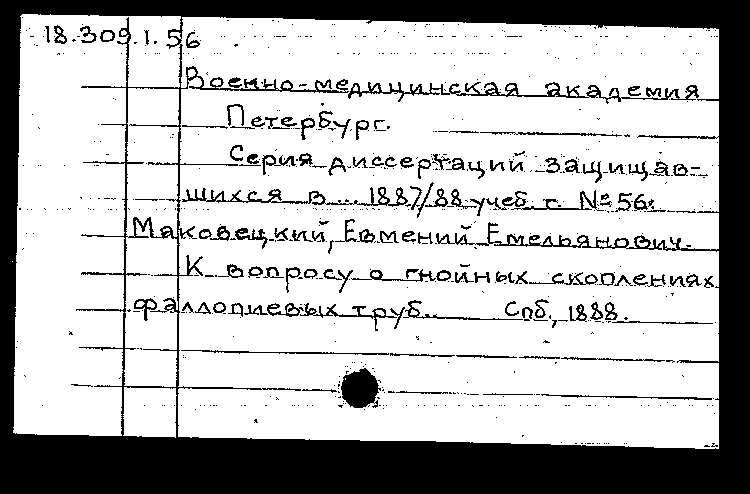 18.309.1.56
Военно-медицинская академия
Петербург.
Серия диссертаций защищав-
шихся в ... 1887/88 учеб. г. № 56.
Маковецкий, Евмений Емельянович.
К вопросу о гнойных скоплениях
фаллопиевых труб. Спб., 1888.